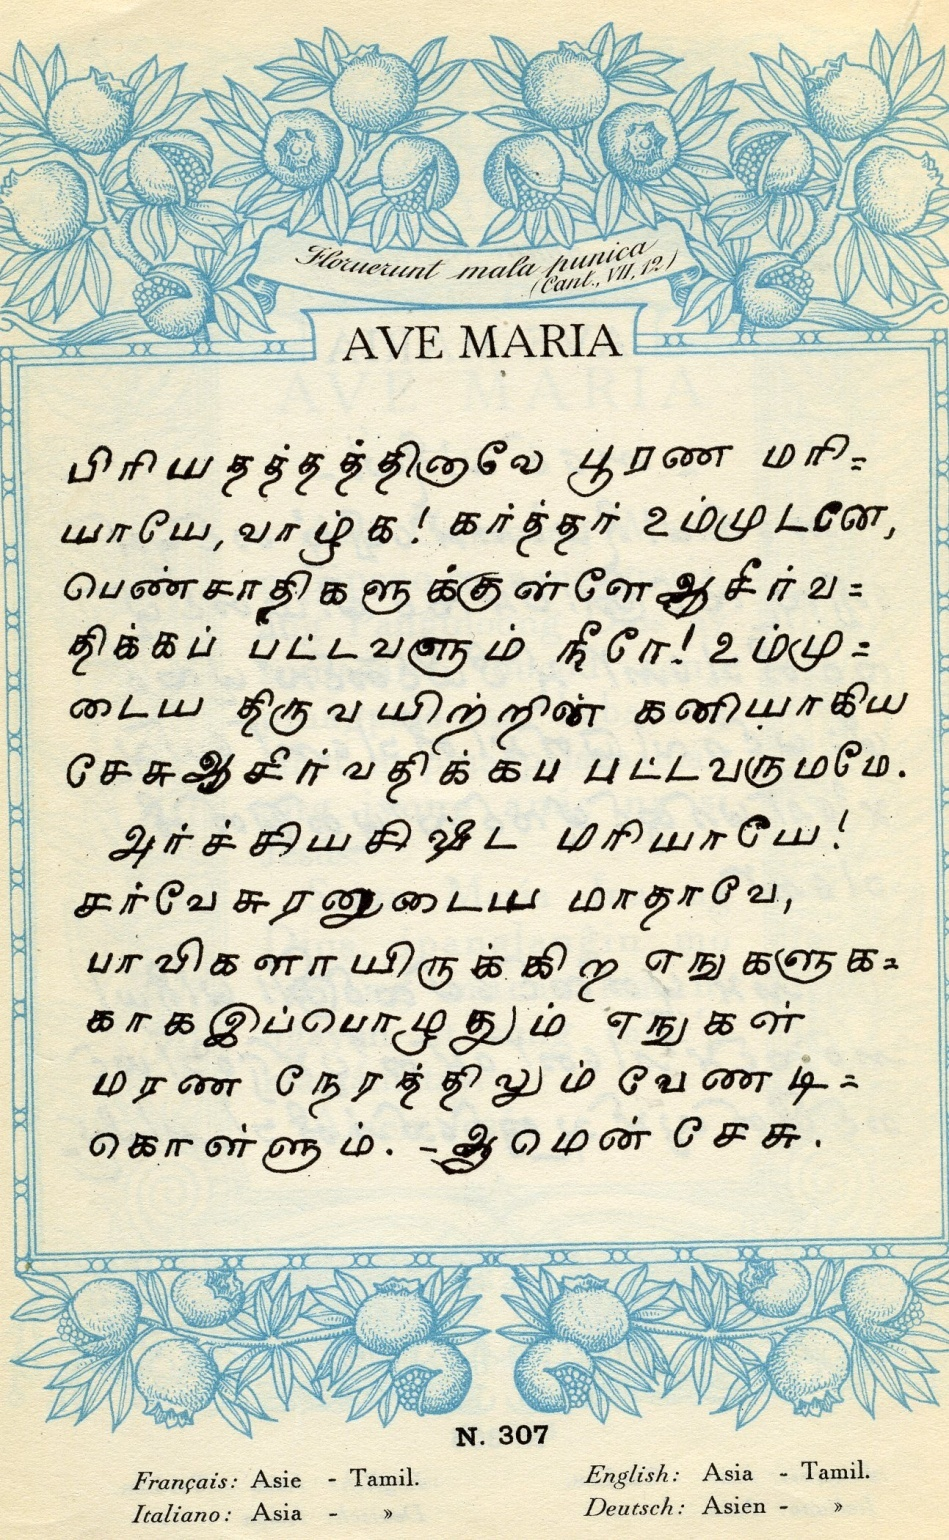 Floruerunt mala punica
(Cant., VII, 12)
AVE MARIA
பிரியதத்தத்தினாலே பூரண மரி=
யாயே, வாழ்க! கர்த்தர் உம்முடனே,
பெண்சாதிகளுக்குள்ளே ஆசீர்வ=
திக்கப் பட்டவளும் நீரே! உம்மு=
டைய திருவயிற்றின் கனியாகிய
சேசு ஆசீர்வதிக்கப பட்டவருமாமே.
அர்ச்சியசிஷ்ட மரியாயே!
சர்வேசுரனுடைய மாதாவே,
பாவிகளாயிருக்கிற எஙுகளுக=
காக இப்பொழுதும் எஙுகள்
மரண நேரத்திலும் வேணடி=
கொள்ளும். - ஆமென் சேசு.
N. 307
Français: Asie - Tamil.
Italiano: Asia - »
English: Asia - Tamil.
Deutsch: Asien - »